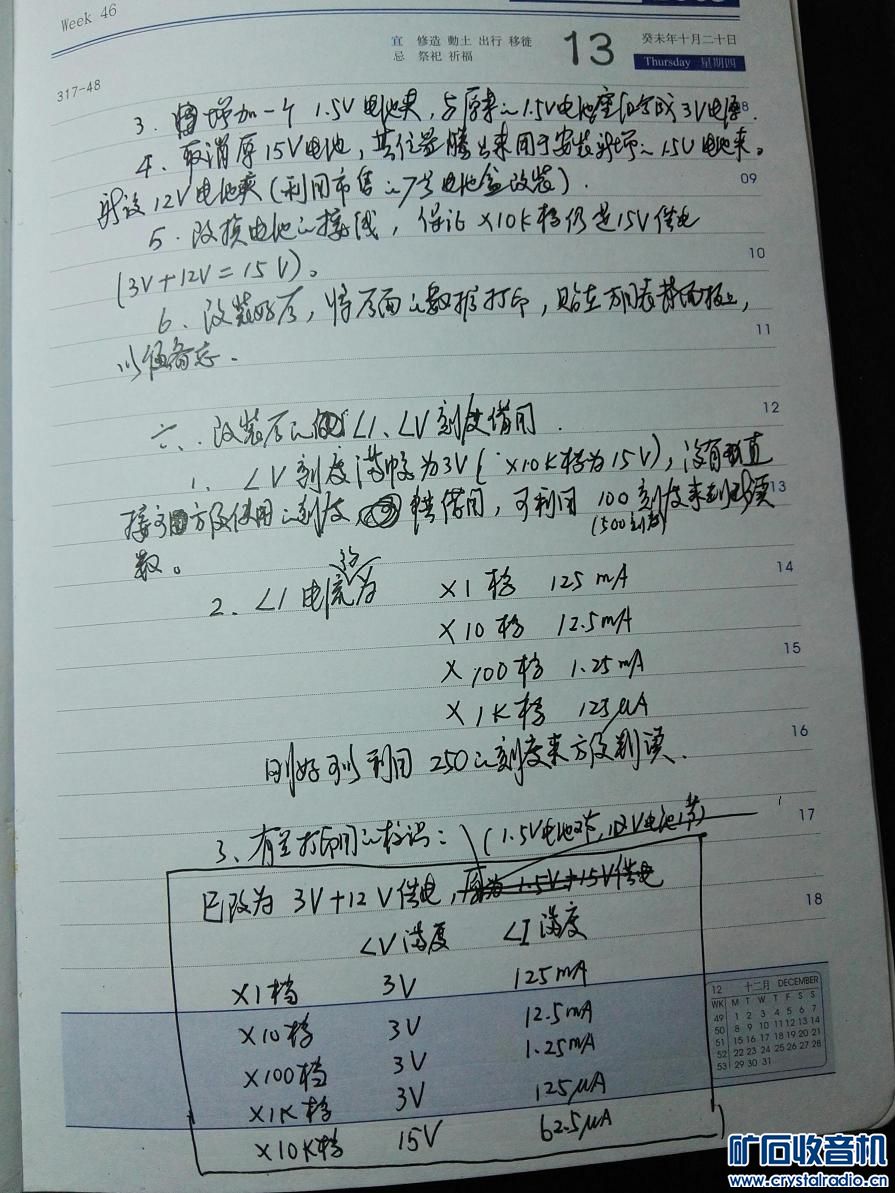 Week 46
宜 修造 動土 出行 移徙
忌 祭祀 祈福
13
癸未年十月二十日
Thursday 星期四
317-48
3. 增加一个1.5V电池夹,与原来的1.5V电池座组合成3V电源. 8
4. 取消原15V电池,其位置腾出来用于安装新增的1.5V电池夹。
新设12V电池夹(利用市售的7号电池盒改装). 09
5. 改换电池的接线,保证×10K档仍是15V供电
(3V+12V=15V)。 10
6. 改装好后,将后面的数据打印,贴在万用表背面板上, 11
以便备忘.
六、改装后的 LI、LV刻度借用. 12
1. LV刻度满幅为3V(×10K档为15V),没有直
接可方便使用的刻度, 借用,可利用100刻度来判读 13
(500刻度)
数。
2. LI电流为 ×1档 125mA 14
×10档 12.5mA
×100档 1.25mA 15
×1K档 125μA
刚好可以利用250的刻度来方便判读. 16
3、有关打印用的标识: 17
(1.5V电池2节,12V电池1节)
已改为3V+12V供电,原为1.5V+15V供电 18
LV满度 LI满度
×1档 3V 125mA
×10档 3V 12.5mA
×100档 3V 1.25mA
×1K档 3V 125μA
×10K档 15V 62.5μA
12 十二月 DECEMBER
WK M T W T F S S
49 1 2 3 4 5 6 7
50 8 9 10 11 12 13 14
51 15 16 17 18 19 20 21
52 22 23 24 25 26 27 28
53 29 30 31
矿石收音机
www.crystalradio.cn